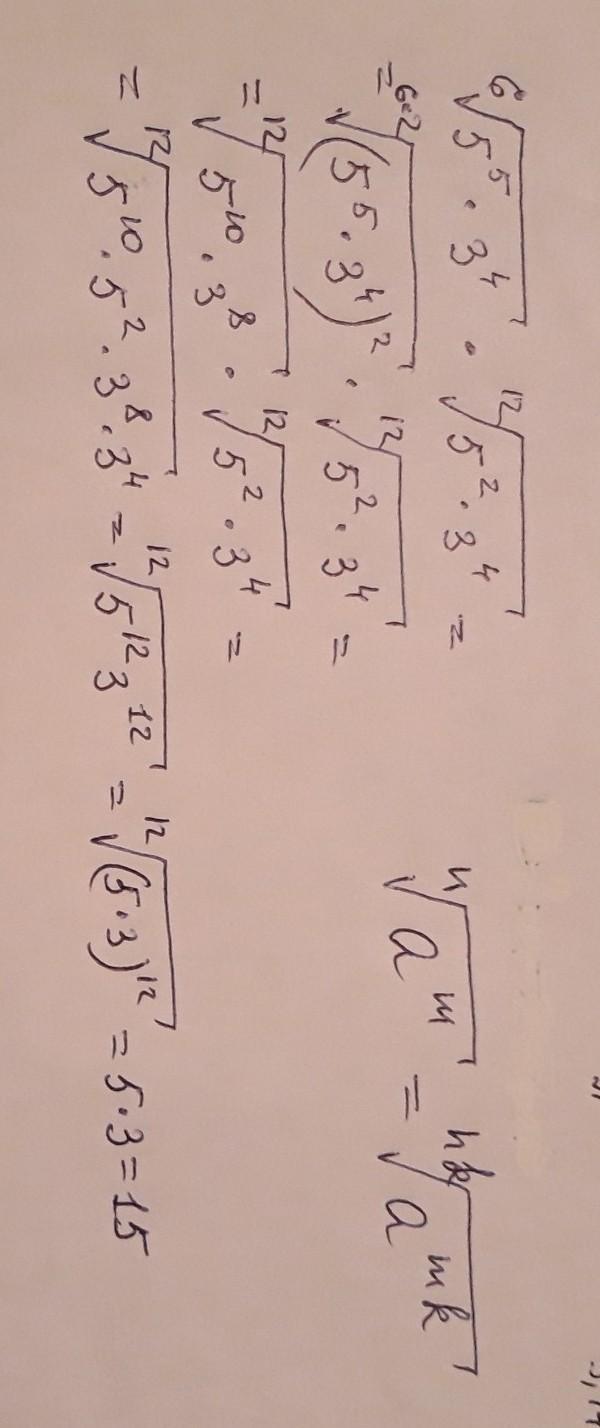 ⁶√(5⁵ · 3⁴) · ¹²√(5² · 3⁴) =
= ⁶·²√((5⁵ · 3⁴)²) · ¹²√(5² · 3⁴) =
= ¹²√(5¹⁰ · 3⁸) · ¹²√(5² · 3⁴) =
= ¹²√(5¹⁰ · 5² · 3⁸ · 3⁴) = ¹²√(5¹² 3¹²) = ¹²√((5·3)¹²) = 5·3 = 15
ⁿ√(aᵐ) = ⁿᵏ√(aᵐᵏ)